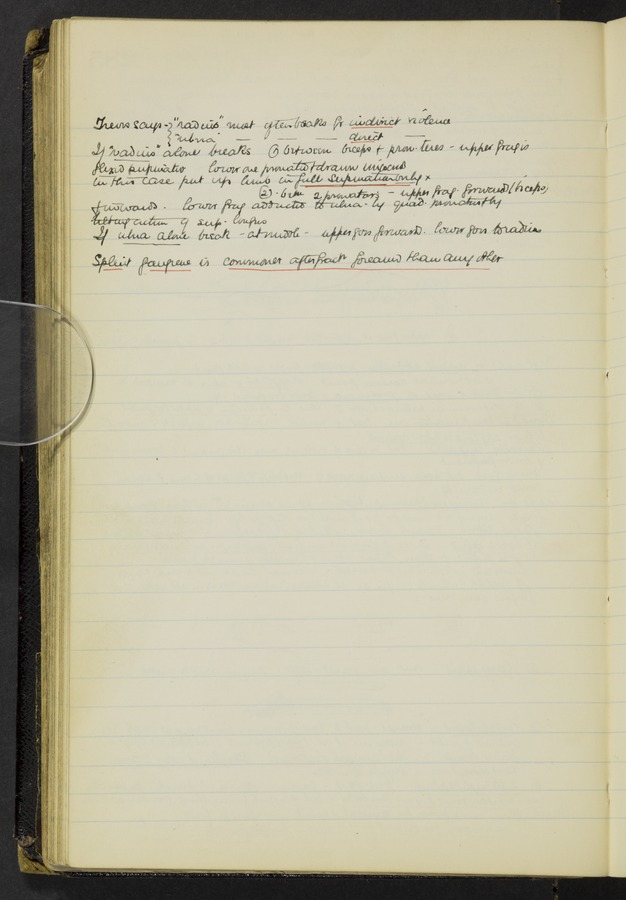 Treves says - "radius" most often breaks fr indirect violence
"ulna" — — — direct —
If "radius" alone breaks ① between biceps & pron. teres - upper frag is
flexed supinated lower one pronated & drawn inward
in this case put up limb in full supination only x
②. btn 2 pronators - upper frag. forward (biceps)
inwards. lower frag adducted to ulna - by quad. pronatus & by
tilting action of sup. longus
If ulna alone break - at middle - upper goes forward. lower goes to radius
Splint gangrene is commoner after fract forearm than any other